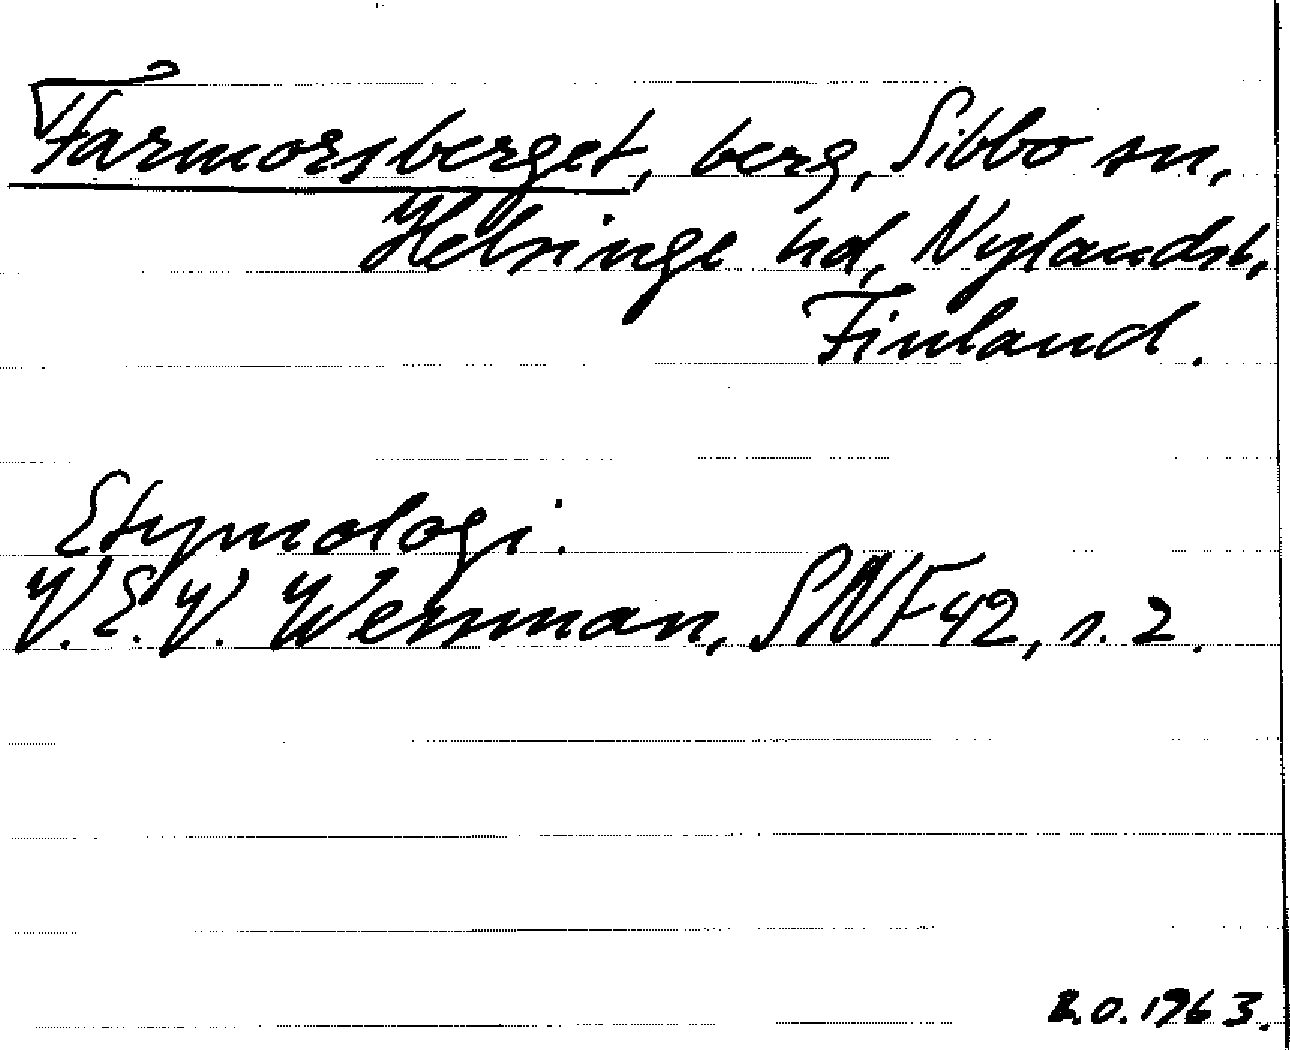 Farmorsberget, berg, Sibbo sn,
Helsinge hd, Nylands l,
Finland.
Etymologi:
V. E. V. Wessman, SNF 42, s. 2.
R.O. 1963.